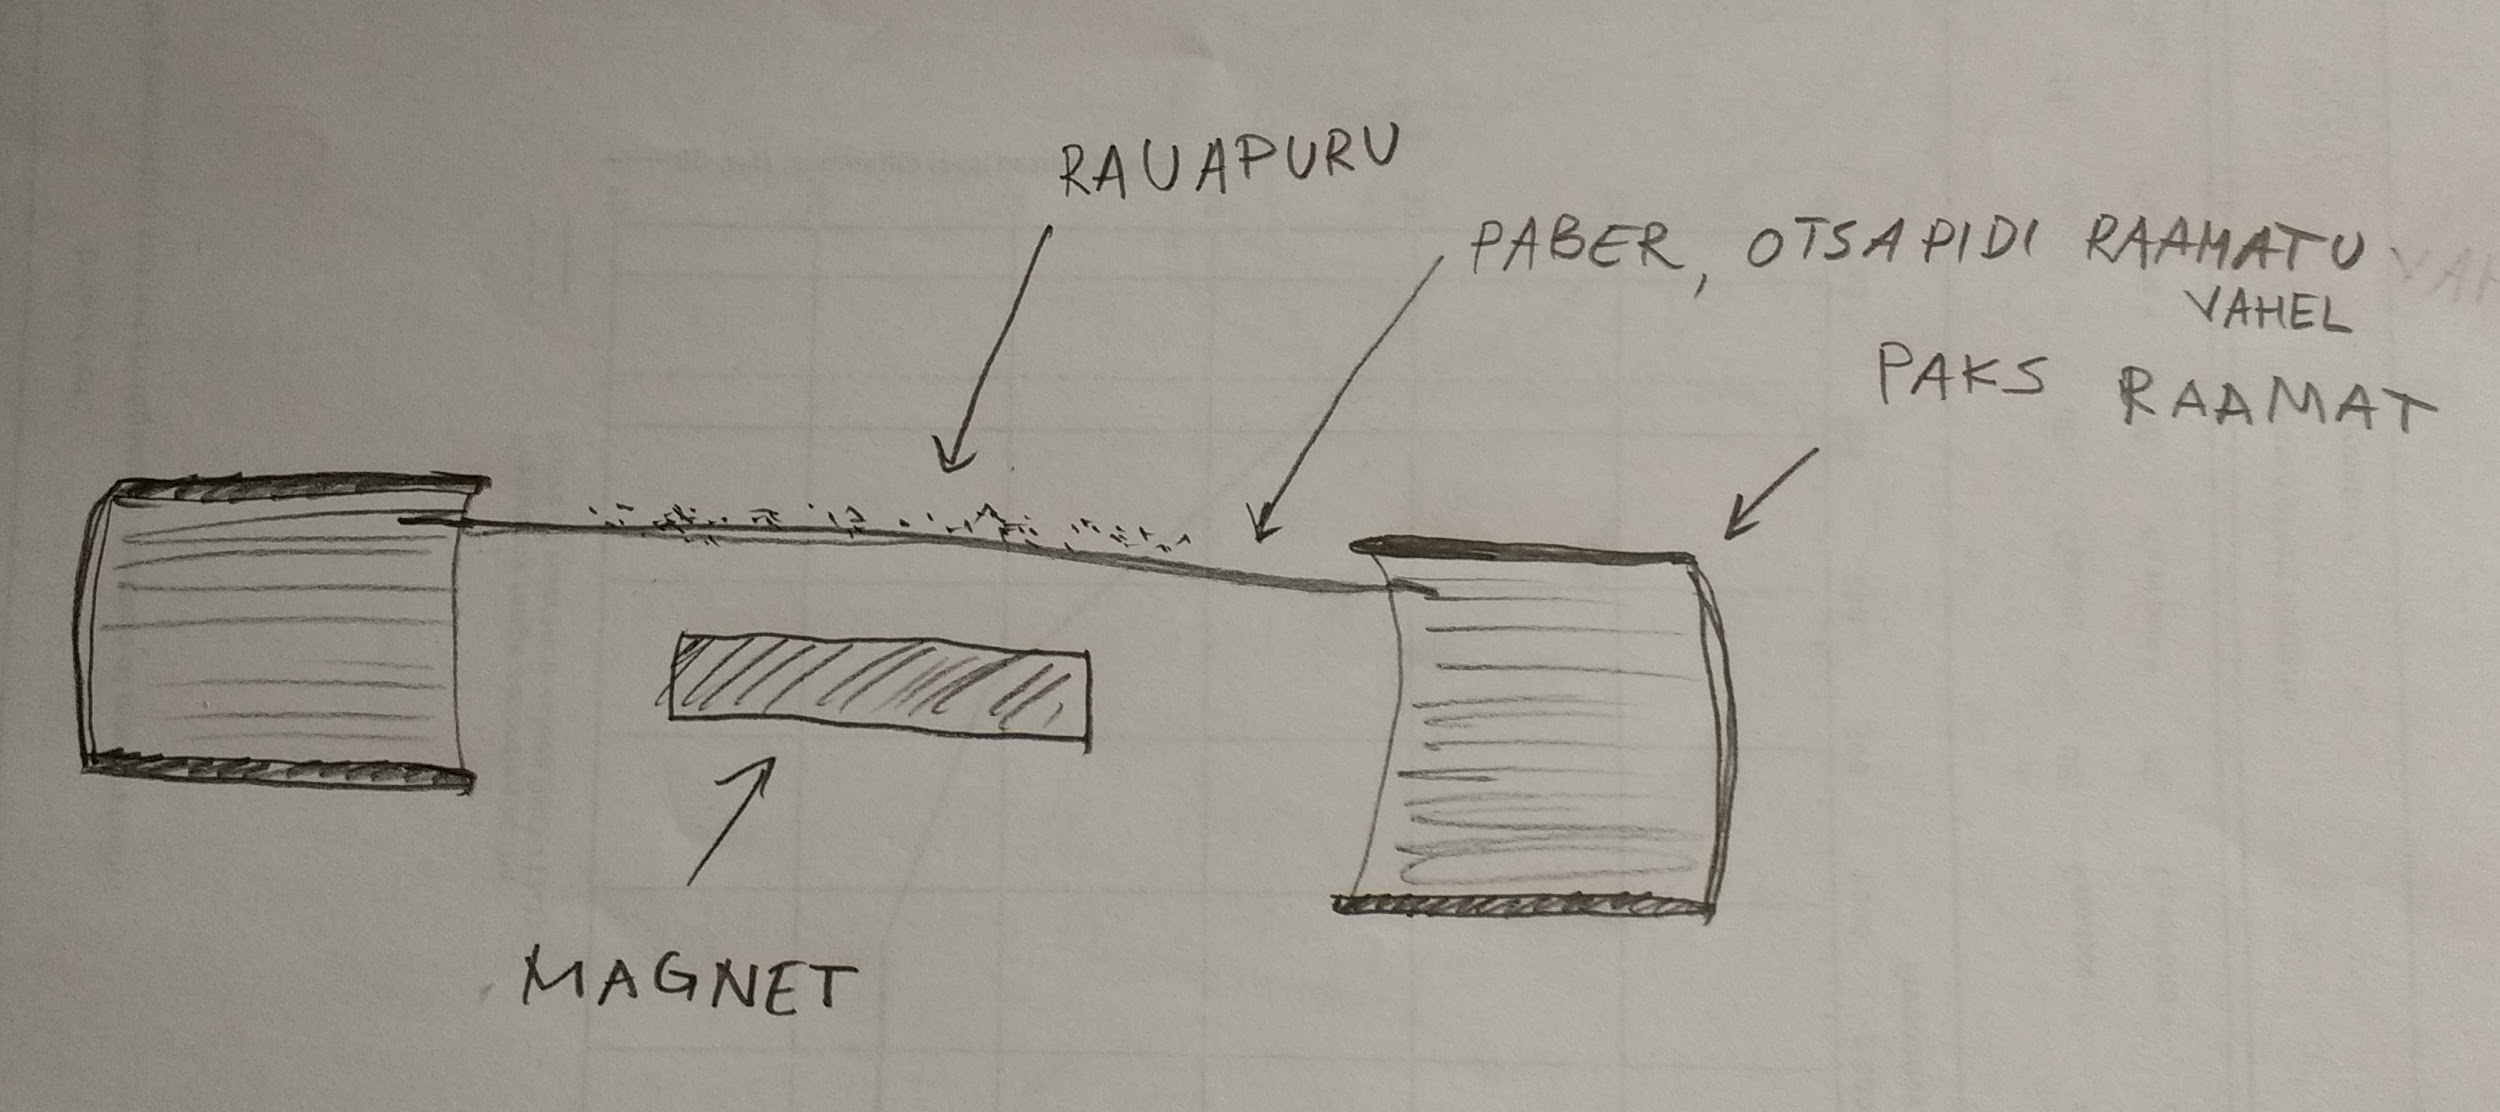 RAUAPURU
PABER, OTSAPIDI RAAMATU
VAHEL
PAKS RAAMAT
MAGNET